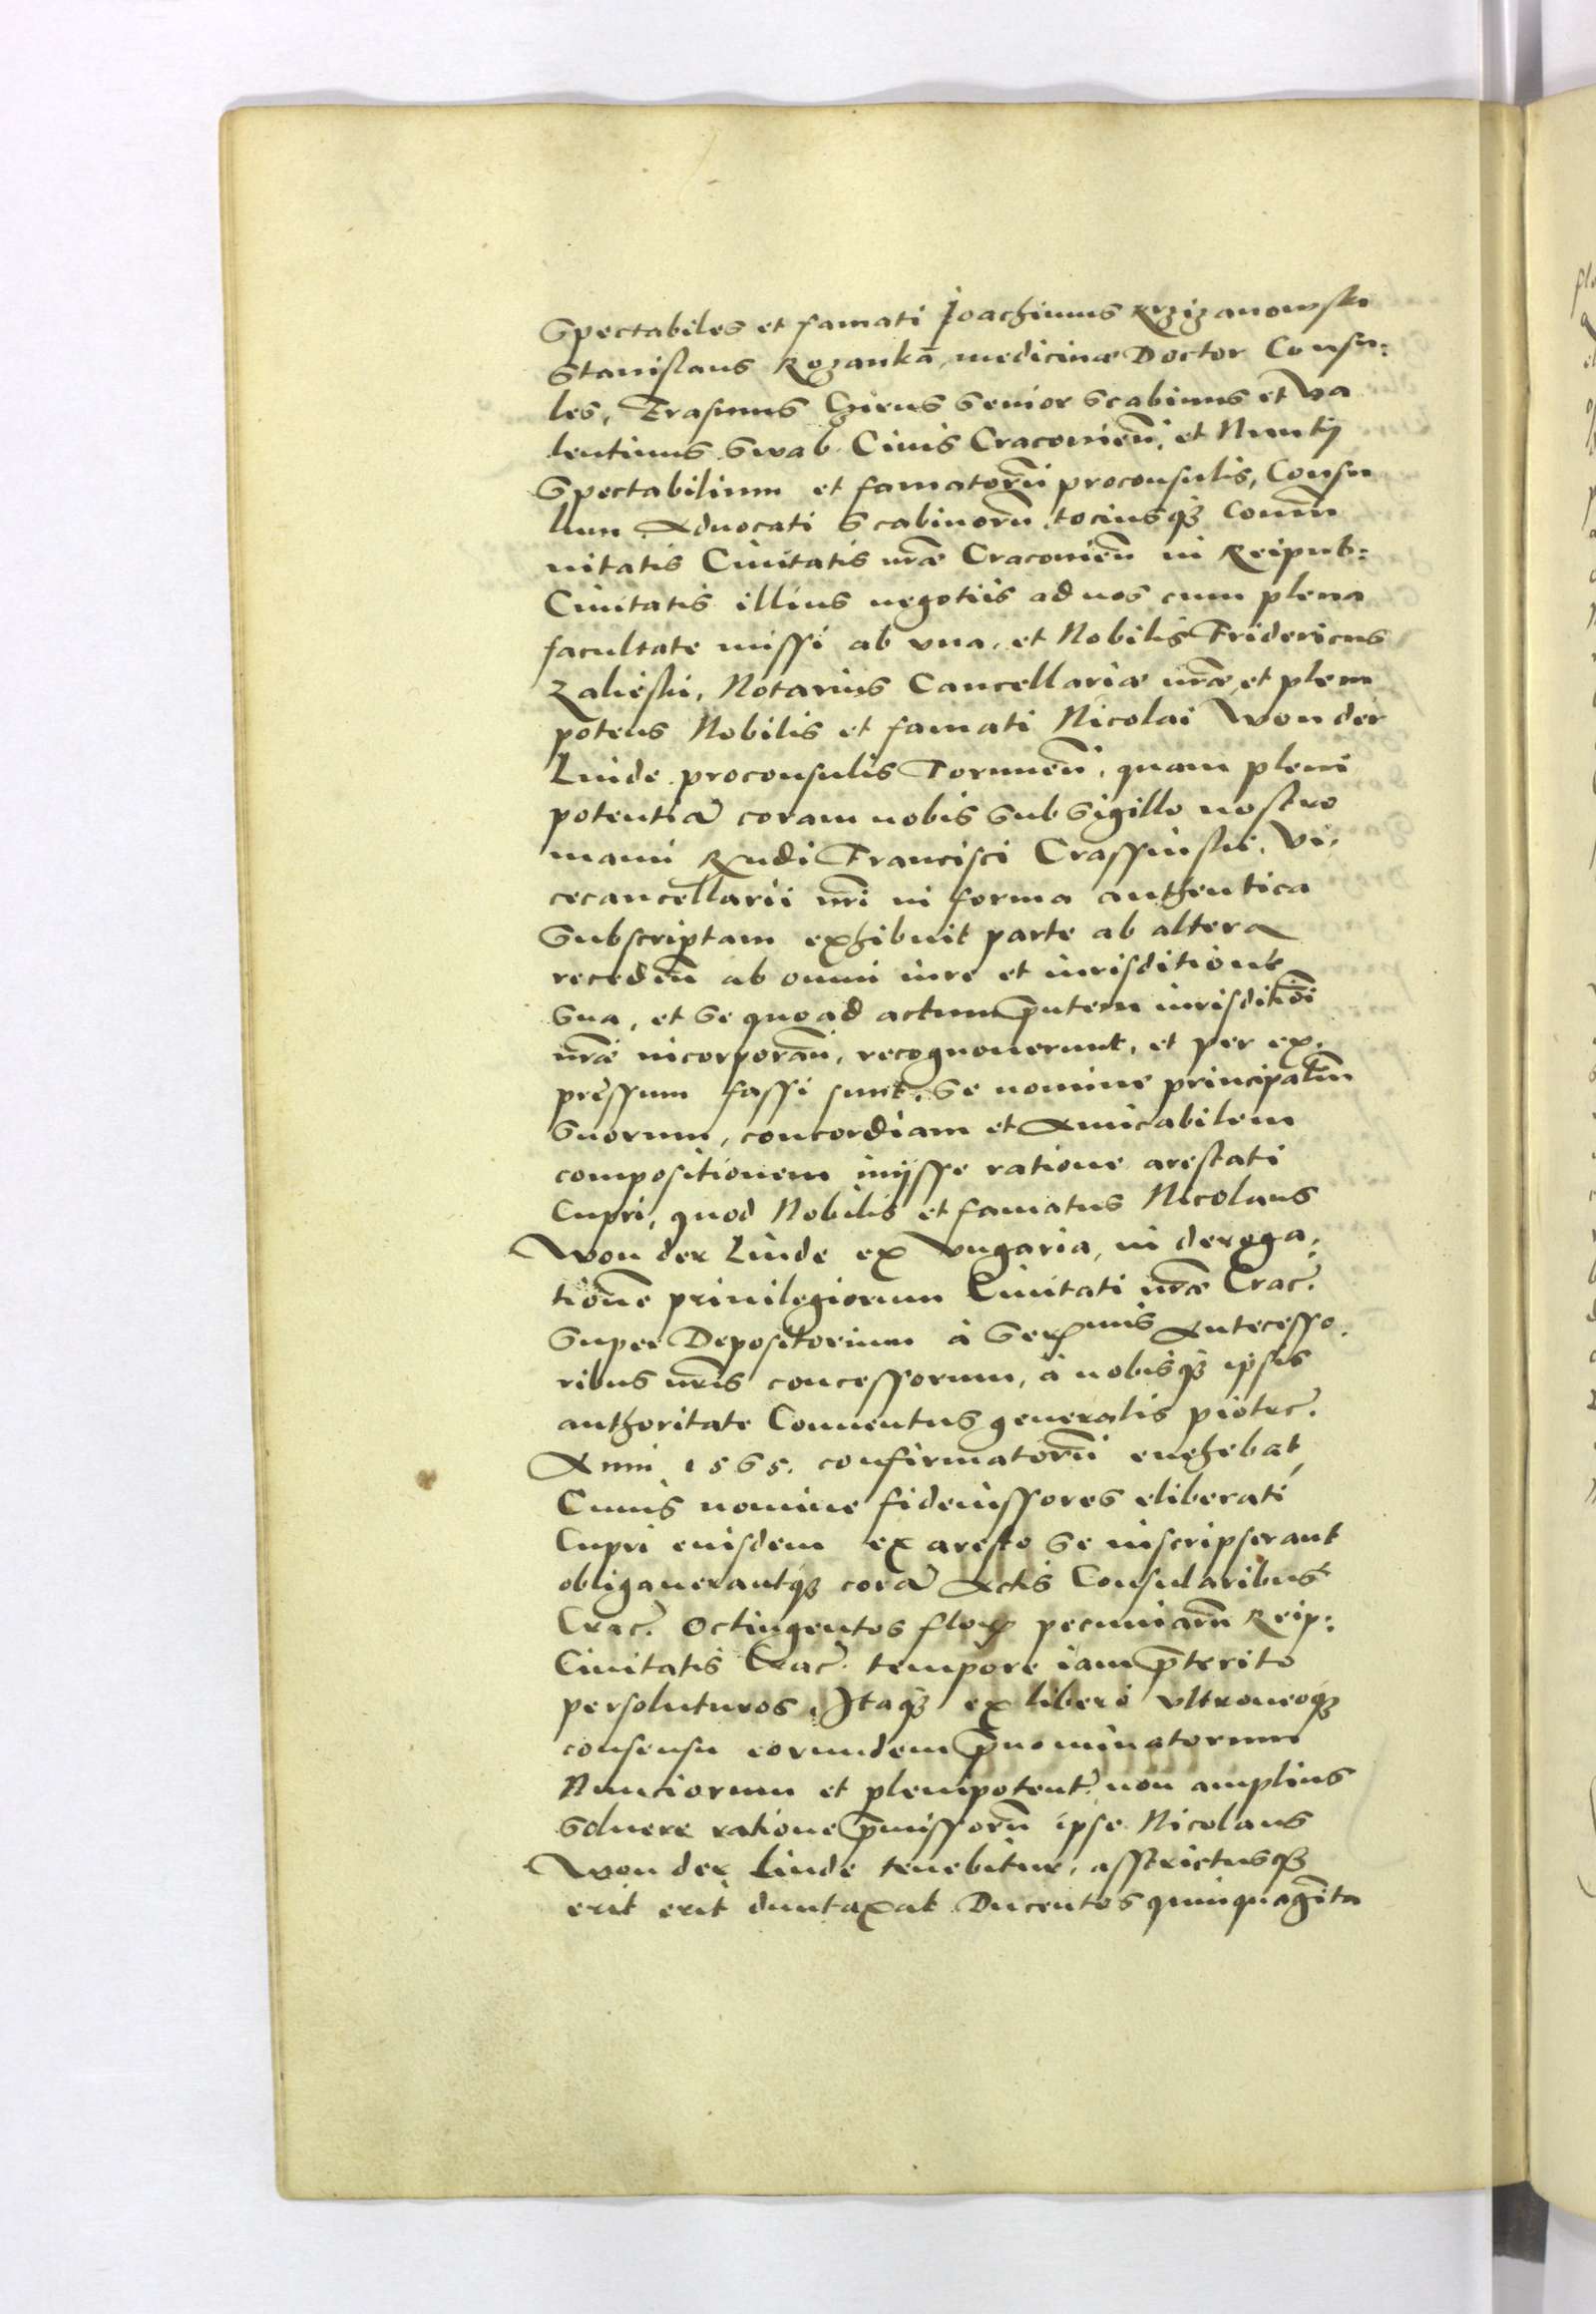 Spectabiles et famati Joachimus Krzizanowski
Stanislaus Rozankā, medicinæ Doctor Consu:
les, Erasmus Czieus Senior Scabinus et Va
lentinus Swab Civis Cracovień, et Nuntÿ
Spectabilium et famatorū proconsulis, Consu
lum Advocati Scabinorū, tociusq̃ꝫ Com̄u
nitatis Civitatis nr̃æ Cracovień in Reipub:
Civitatis illius negotiis ad nos cum plena
facultate missi ab vna, et Nobilis Fridericus
Zalieski, Notarius Cancellariæ nr̃æ, et pleni
potens Nobilis et famati Nicolai Won der
Linde proconsulis Torunień, quam pleni
potentiā coram nobis Sub Sigillo nostro
manu Rn̄di Francisci Crassinski, Vi:
cecancellarii nr̃i in forma authentica
Subscriptam exhibuit parte ab altera
recedeń ab omni iure et iurisditione
Sua, et Se quo ad actum p̄ntem iurisditiōi
nr̃æ incorporań, recognouerunt, et per ex:
pressum fassi sunt. Se nomine principaliū
Suorum, concordiam et Amicabilem
compositionem inÿsse ratione arestati
Cupri, quod Nobilis et famatus Nicolaus
Won der Linde ex Vngaria, in deroga:
tionē privilegiorum Civitati nr̃æ Crac̃.
Super Depositorium à Serx^mis Antecesso:
ribus nr̃is concessorum, à nobisq̃ꝫ ipsis
authoritate Conventus generalis piotrc̃.
Anni 1565. confirmatorū euehebat,
Cuius nomine fideiussores eliberati
Cupri euisdem ex aresto Se inscripserant
obligauerantq̃ꝫ corā Actis Consularibus
Crac̃. Octingentos flox pecuniarū Reip:
Civitatis Crac̃. tempore iam p̄terito
persoluturos. Itaq̃ꝫ ex libero vltroneoq̃ꝫ
consensu eorundem p̄nominatorum
Nunciorum et plenipotent̃. non amplius
Soluere ratione p̄missorū ipse Nicolaus
Won der Linde tenebitur, asstrictusq̃ꝫ
erit erit duntaxat Ducentos quinquagīta